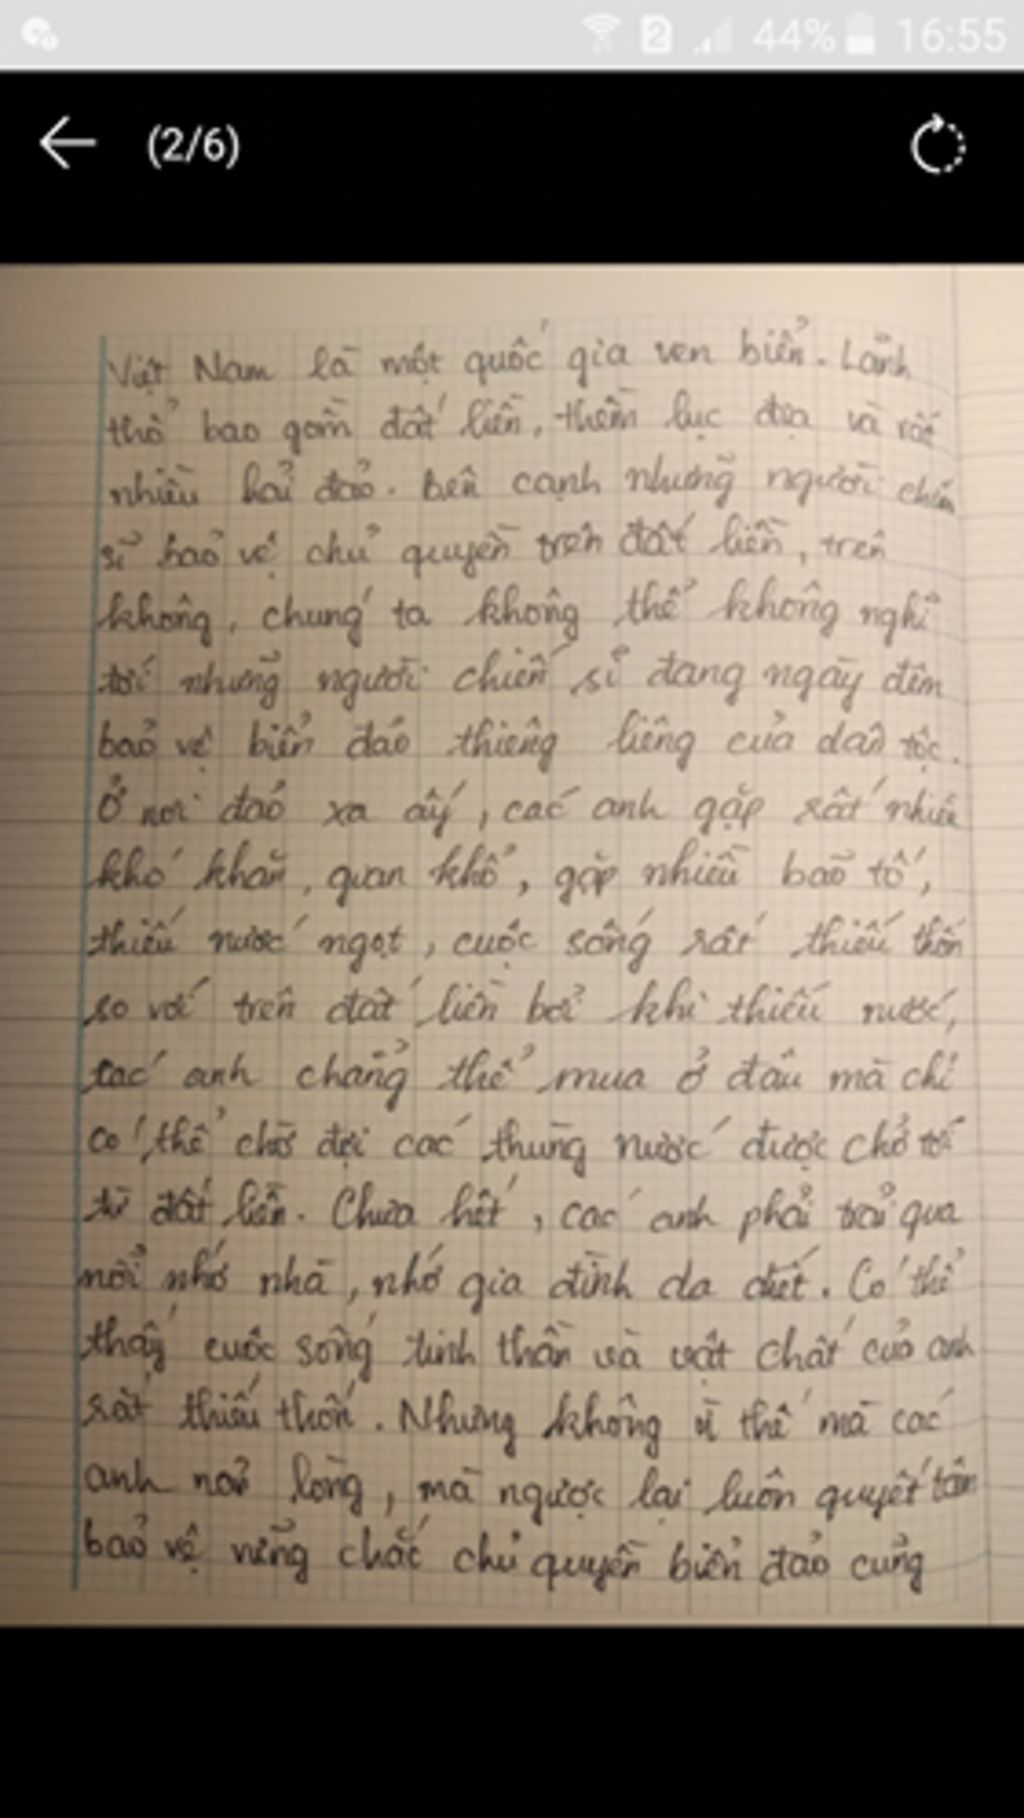 44% 16:55
(2/6)
Việt Nam là một quốc gia ven biển. Lãnh
thổ bao gồm đất liền, thềm lục địa và rất
nhiều hải đảo. Bên cạnh những người chiến
sĩ bảo vệ chủ quyền trên đất liền, trên
không, chúng ta không thể không nghĩ
tới những người chiến sĩ đang ngày đêm
bảo vệ biển đảo thiêng liêng của dân tộc.
Ở nơi đảo xa ấy, các anh gặp rất nhiều
khó khăn, gian khổ, gặp nhiều bão tố,
thiếu nước ngọt, cuộc sống rất thiếu thốn
so với trên đất liền bởi khi thiếu nước,
các anh chẳng thể mua ở đâu mà chỉ
có thể chờ đợi các thùng nước được chở tới
từ đất liền. Chưa hết, các anh phải trải qua
nỗi nhớ nhà, nhớ gia đình da diết. Có thể
thấy cuộc sống tinh thần và vật chất của anh
rất thiếu thốn. Nhưng không vì thế mà các
anh nản lòng, mà ngược lại luôn quyết tâm
bảo vệ vững chắc chủ quyền biển đảo cũng